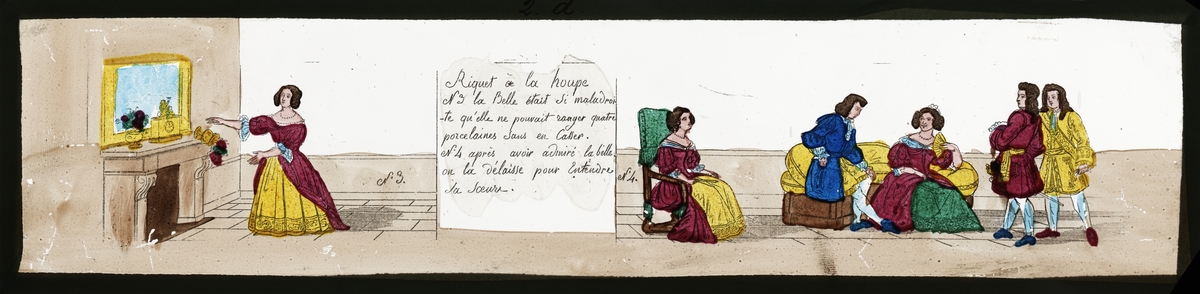 2. d.
Riquet à la houpe
N.3 la Belle était si maladroi
-te qu'elle ne pouvait ranger quatre
porcelaines sans en Casser.
N.4 après avoir admiré la belle
on la délaisse pour Entendre
sa sœur.
N.3.
N.4.